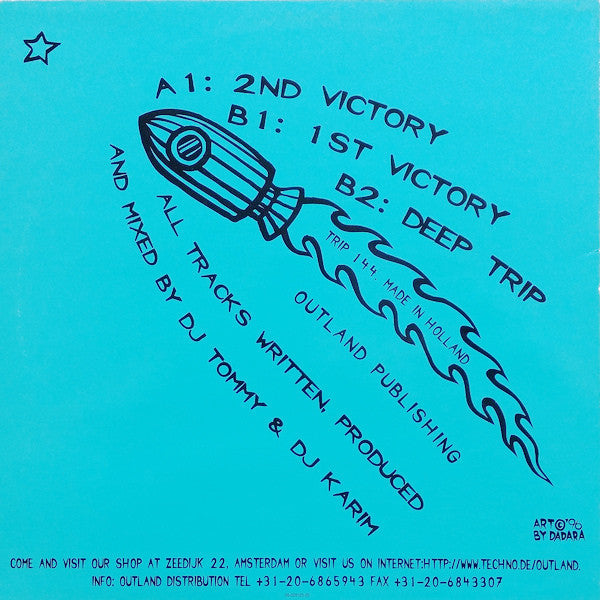 A1: 2ND VICTORY
B1: 1ST VICTORY
B2: DEEP TRIP
TRIP 144. MADE IN HOLLAND
OUTLAND PUBLISHING
ALL TRACKS WRITTEN, PRODUCED
AND MIXED BY DJ TOMMY & DJ KARIM
ART©'96
BY DADARA
COME AND VISIT OUR SHOP AT ZEEDIJK 22, AMSTERDAM OR VISIT US ON INTERNET:HTTP://WWW.TECHNO.DE/OUTLAND.
INFO; OUTLAND DISTRIBUTION TEL +31-20-6865943 FAX +31-20-6843307